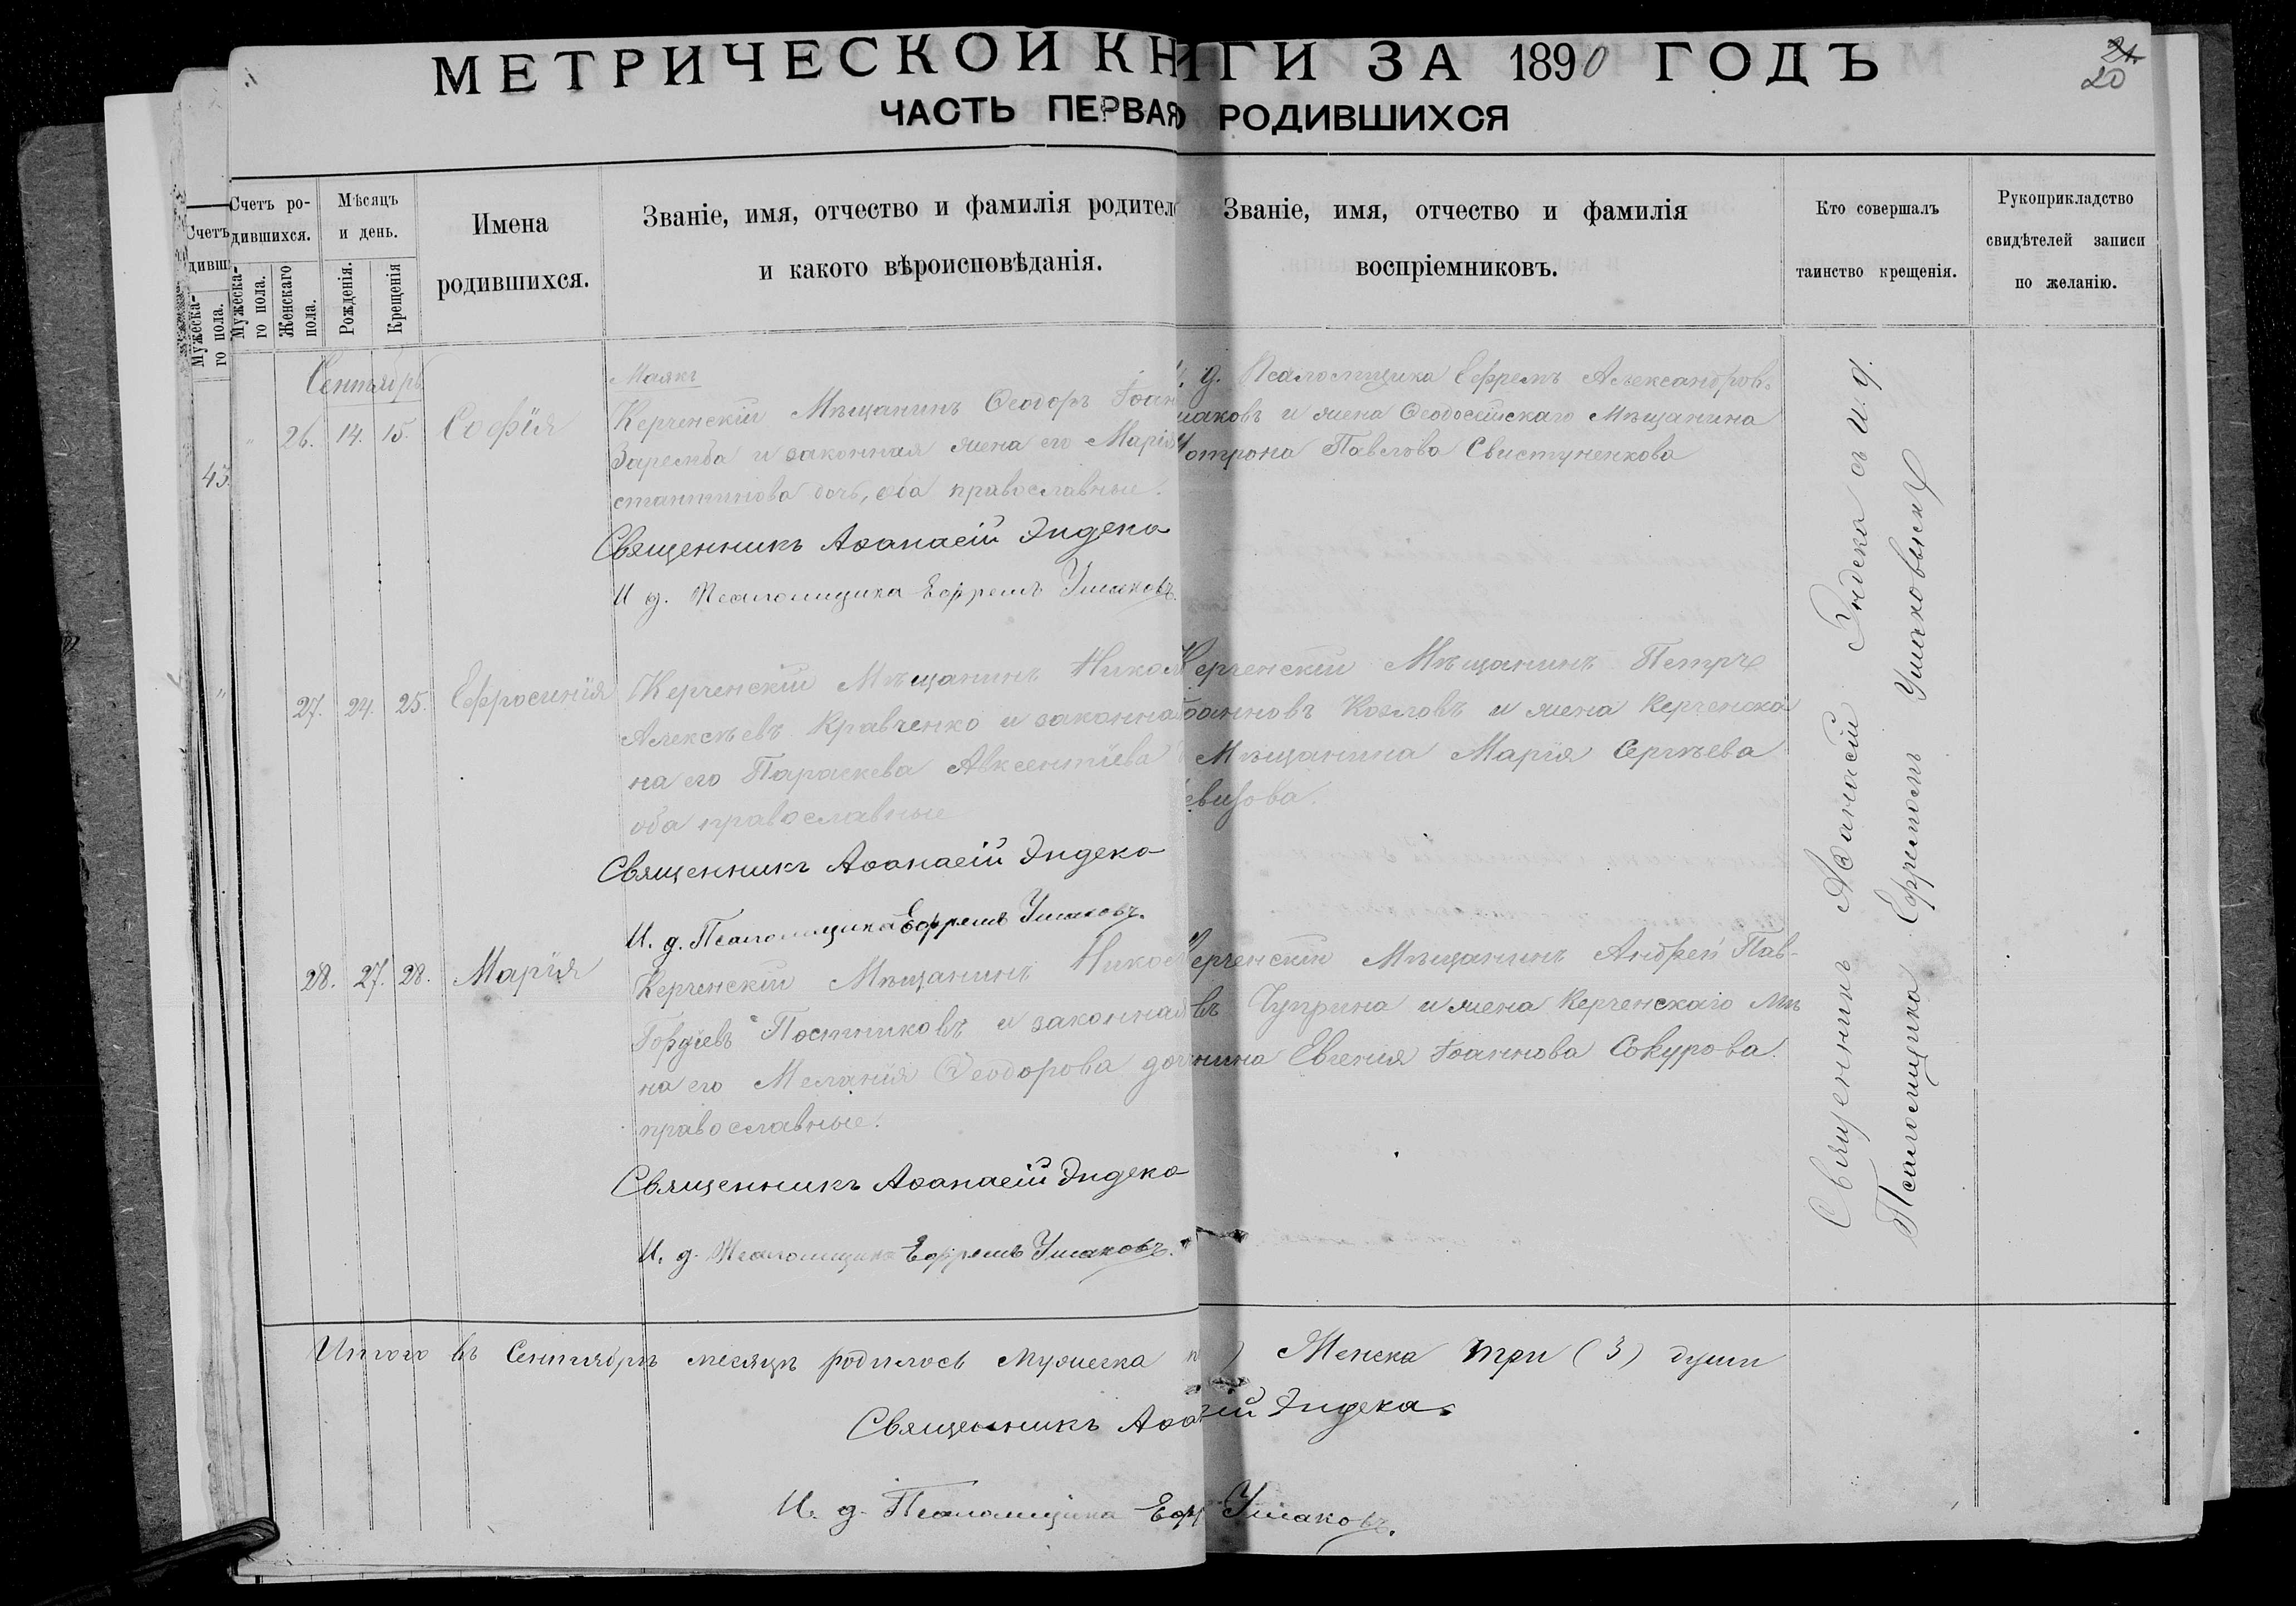 МЕТРИЧЕСКОЙ КНИГИ ЗА 1890 ГОДЪ
21
20
ЧАСТЬ ПЕРВАЯ О РОДИВШИХСЯ
Счетъ ро-
дившихся.
Мужеска-
го пола.
Женскаго
пола.
Мѣсяцъ
и день.
Рожденія.
Крещенія
Имена
родившихся.
Званіе, имя, отчество и фамилія родител
и какого вѣроисповѣданія.
Званіе, имя, отчество и фамилія
воспріемниковъ.
Кто совершалъ
таинство крещенія.
Рукоприкладство
свидѣтелей записи
по желанію.
Счетъ
дивш
Мужеска-
го пола.
43.
Сентябрь
" 26. 14. 15. Софія
Маякъ
Керченскій Мѣщанинъ Ѳеодоръ Іоан
Заремба и законная жена его Марія
стантинова дочь, оба православные.
Священникъ Аѳанасій Эндека
И д. Псаломщика Ефремъ Ушаковъ.
д. Псаломщика Ефремъ Александров.
шаковъ и жена Ѳеодосейскаго Мѣщанина
отрона Павлова Свистуненкова
27. 24. 25. Ефросинія
Керченскій Мѣщанинъ Никол
Алексѣевъ Кравченко и законна
на его Параскева Авксентіева
оба православные
Священникъ Аѳанасій Эндека
И. д. Псаломщика Ефремъ Ушаковъ.
Керченскій Мѣщанинъ Петръ
Іоанновъ Козловъ и жена Керченска
Мѣщанина Марія Сергѣева
евизова.
28. 27. 28. Марія
Керченскій Мѣщанинъ Никол
Гордіевъ Постниковъ и законная
на его Меланія Ѳеодорова доч
православные.
Священникъ Аѳанасій Эндека
И. д. Псаломщика Ефремъ Ушаковъ.
Керченскій Мѣщанинъ Андрей Пав-
въ Чуприна и жена Керченскаго Мѣ
нина Евгенія Іоаннова Сокурова.
Священникъ Аѳанасій Эндека съ И. д.
Псаломщика Ефремомъ Ушаковымъ
Итого въ Сентябрѣ месяцѣ родилось мужеска п ) Женска три (3) души
Священникъ Аѳа ій Эндека.
И. д. Псаломщика Ефр Ушаковъ.